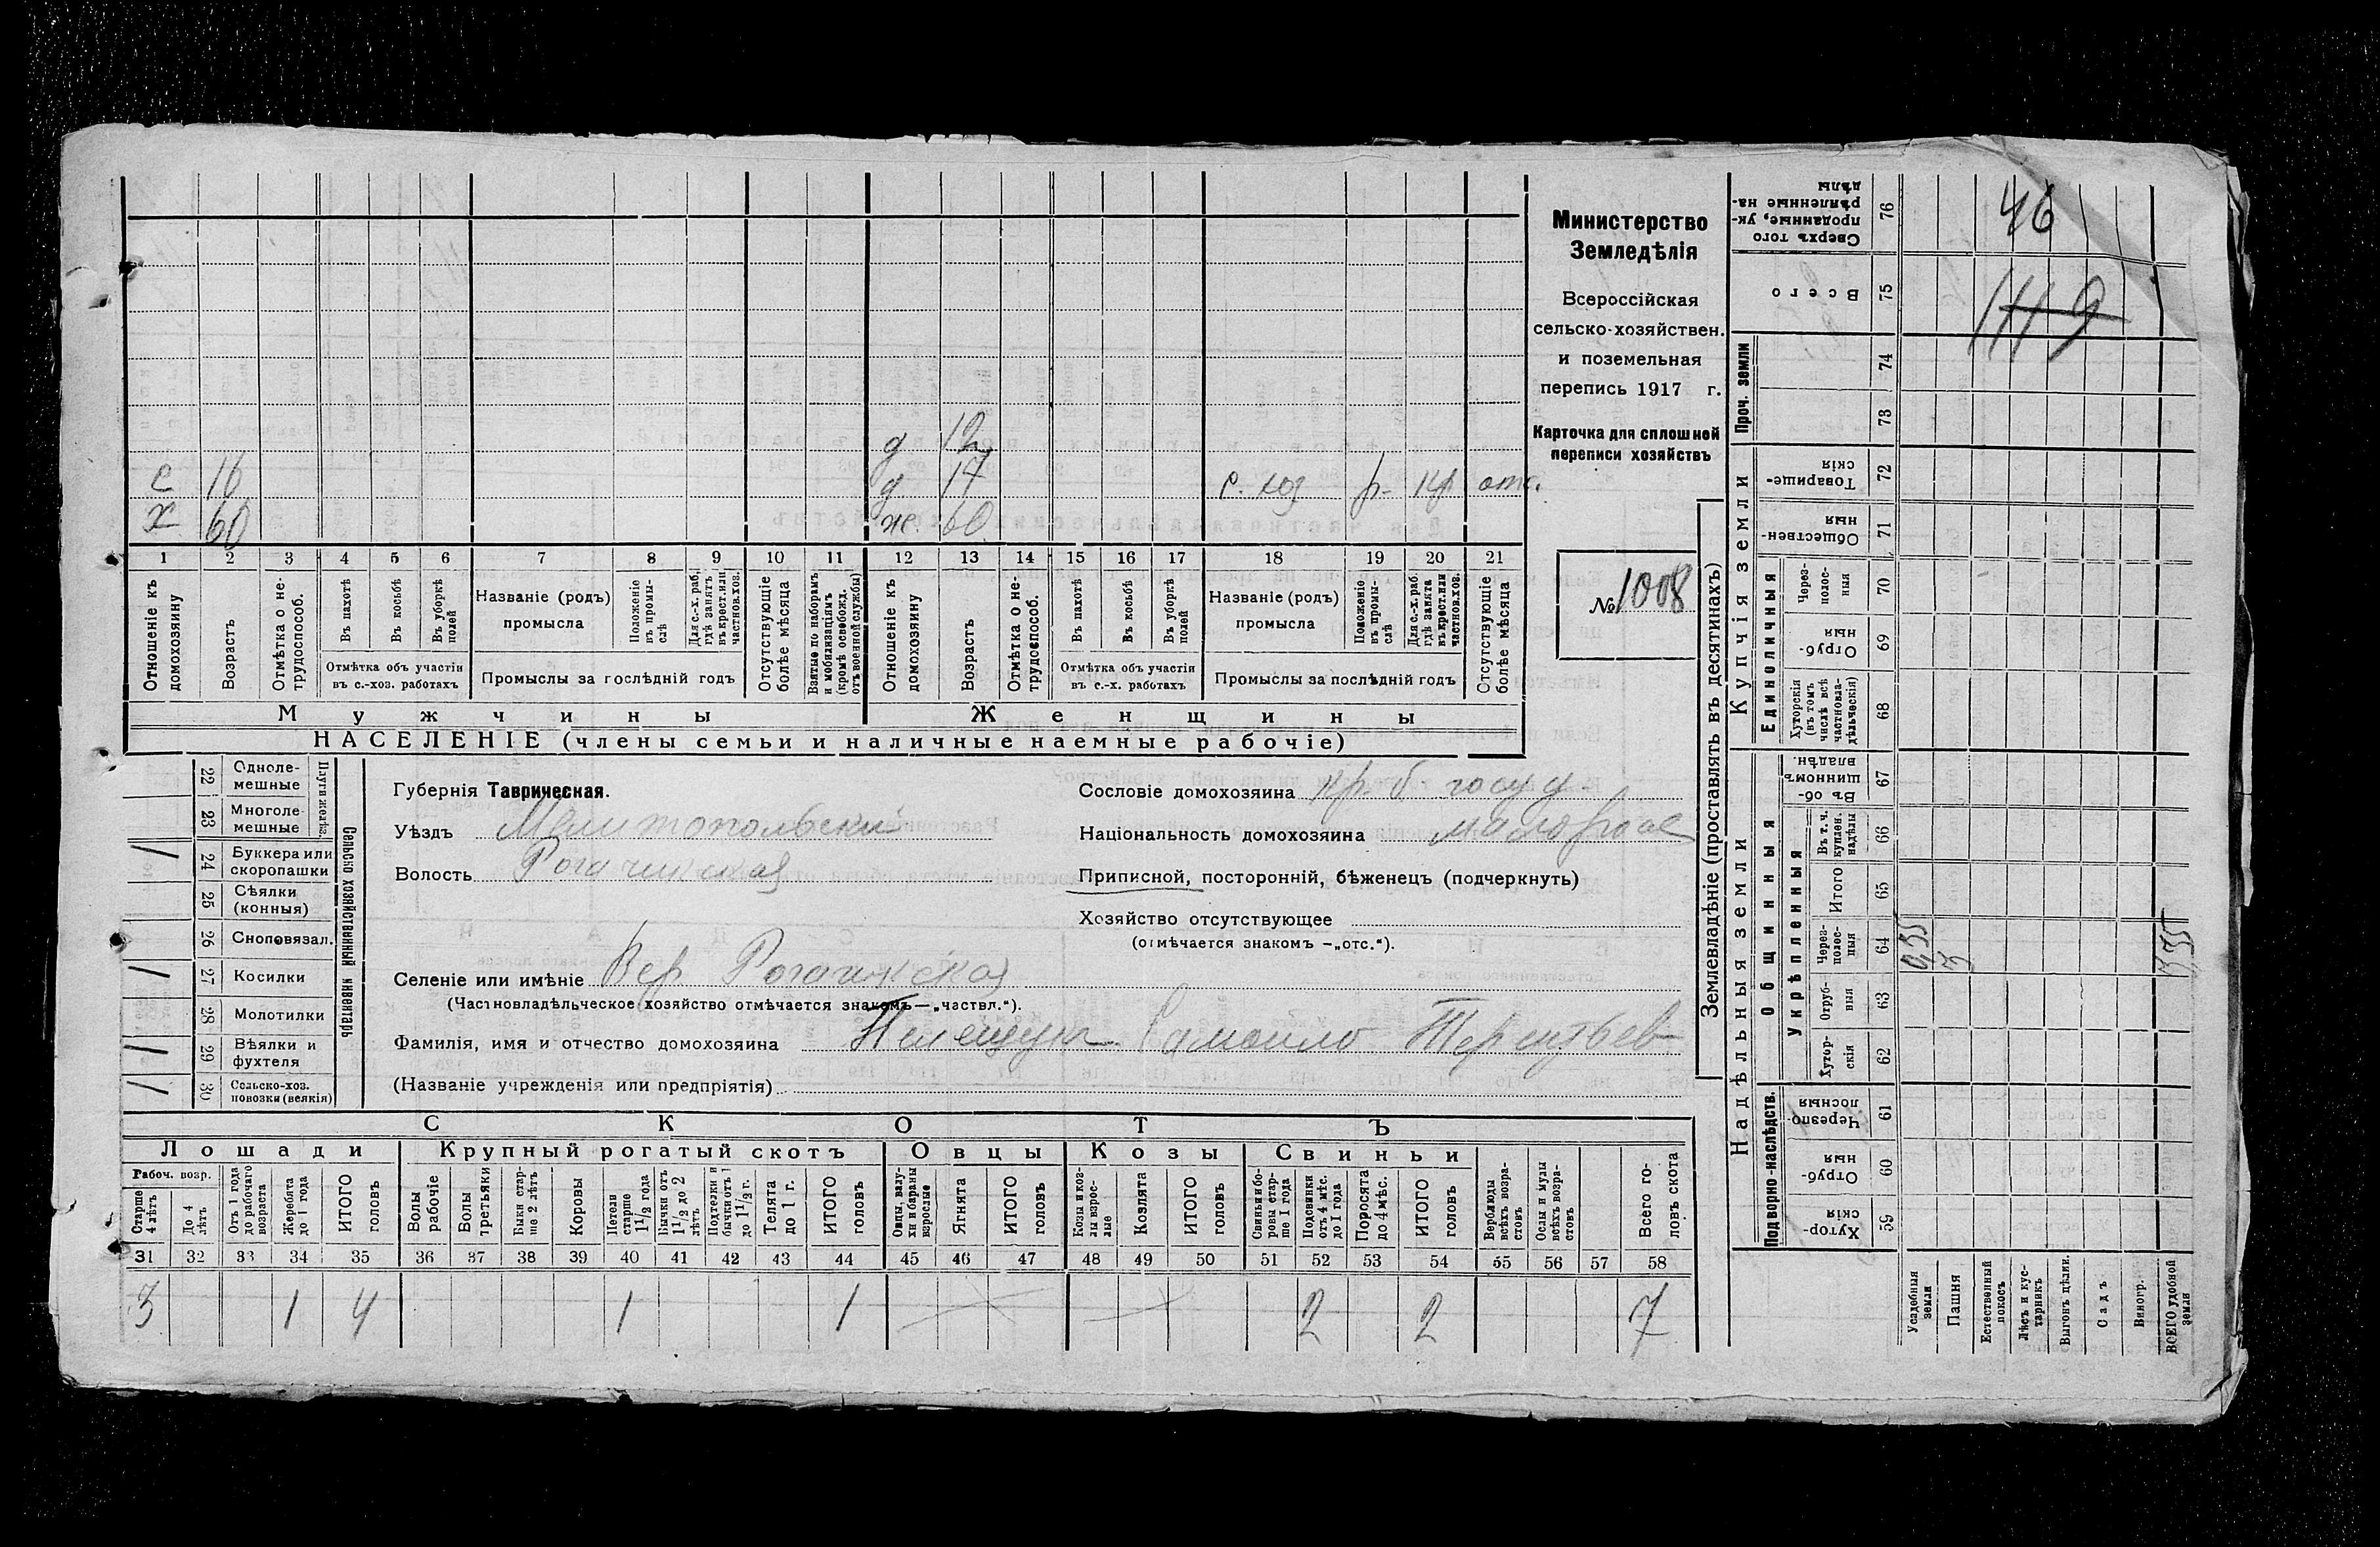 Министерство
Земледѣлія
Всероссійская
сельско-хозяйствен.
и поземельная
перепись 1917 г.
Карточка для сплошной
переписи хозяйствъ
№ 1008
д 12
с 16 д 17 с. хоз р. кр отс.
х 60 ж. 60
1 2 3 4 5 6 7 8 9 10 11 12 13 14 15 16 17 18 19 20 21
Отношеніе къ домохозяину
Возрастъ
Отмѣтка о не-трудоспособ.
Въ пахотѣ
Въ косьбѣ
Въ уборкѣ полей
Отмѣтка объ участіи
въ с.-хоз. работахъ
Названіе (родъ)
промысла
Положеніе въ промы-слѣ
Для с.-х. раб. гдѣ занятъ въ крест. или частнов. хоз.
Промыслы за послѣдній годъ
Отсутствующіе болѣе мѣсяца
Взятые по наборамъ и мобилизаціямъ (кромѣ освобожд. отъ военной службы)
Отношеніе къ домохозяину
Возрастъ
Отмѣтка о не-трудоспособ.
Въ пахотѣ
Въ косьбѣ
Въ уборкѣ полей
Отмѣтка объ участіи
въ с.-х. работахъ
Названіе (родъ)
промысла
Положеніе въ промы-слѣ
Для с.-х. раб. гдѣ занята въ крест. или частнов. хоз.
Промыслы за послѣдній годъ
Отсутствующіе болѣе мѣсяца
Мужчины Женщины
НАСЕЛЕНІЕ (члены семьи и наличные наемные рабочіе)
Сельско хозяйственный инвентарь
Плуги желѣз.
22 Одноле-мешные
23 Многоле-мешные
/ 24 Буккера или скоропашки
25 Сѣялки (конныя)
26 Сноповязал.
/ 27 Косилки
28 Молотилки
/ 29 Вѣялки и фухтеля
/ 30 Сельско-хоз. повозки (всякія)
Губернія Таврическая.
Уѣздъ Мелитопольски
Волость Рогачикская
Селеніе или имѣніе Вер Рогачикская
(Частновладѣльческое хозяйство отмѣчается знакомъ—„частвл.“).
Фамилія, имя и отчество домохозяина Самоило Терентьев
(Названіе учрежденія или предпріятія)
Сословіе домохозяина кр. б. госуд.
Національность домохозяина малорос
Приписной, посторонній, бѣженецъ (подчеркнуть)
Хозяйство отсутствующее
(отмѣчается знакомъ —„отс.“).
СКОТЪ
Лошади Крупный рогатый скотъ Овцы Козы Свиньи
Рабоч. возр.
Старше 4 лѣтъ
До 4 лѣтъ
Отъ 1 года до рабочаго возраста
Жеребята до 1 года
ИТОГО головъ
Волы рабочіе
Волы третьяки
Быки стар-ше 2 лѣтъ
Коровы
Нетели старше 1 1/2 года
Бычки отъ 1 1/2 до 2 лѣтъ
Подтелки и бычки отъ 1 до 1 1/2 г.
Телята до 1 г.
ИТОГО головъ
Овцы, валу-хи и бараны взрослые
Ягнята
ИТОГО головъ
Козы и коз-лы взрос-лые
Козлята
ИТОГО головъ
Свиньи и бо-ровы стар-ше 1 года
Подсвинки отъ 4 мѣс. до 1 года
Поросята до 4 мѣс.
ИТОГО головъ
Верблюды всѣхъ возра-стовъ
Ослы и мулы всѣхъ возра-стовъ
Всего го-ловъ скота
31 32 33 34 35 36 37 38 39 40 41 42 43 44 45 46 47 48 49 50 51 52 53 54 55 56 57 58
3 1 4 1 1 2 2 7
Землевладѣніе (проставлять въ десятинахъ)
Купчія земли
Надѣльныя земли
Сверхъ того проданные, ук-рѣпленные на-дѣлы 76 46
Всего 75
Проч. земли 74 73
Товарище-скія 72
Обществен-ныя 71
Единоличныя
Через-полос-ныя 70
Отруб-ныя 69
Хуторскія (въ томъ числѣ всѣ частновла-дѣльческія) 68
Общинныя
Въ об-щинномъ владѣн. 67
Укрѣпленныя
Въ т. ч. куплен. надѣлы 66
Итого 65
Через-полос-ныя 64 0,35 3 3,35
Отруб-ныя 63
Хутор-скія 62
Подворно-наслѣдств.
Черезпо-лосныя 61
Отруб-ныя 60
Хутор-скія 59
Усадебныя земли
Пашня
Естественный покосъ
Лѣсъ и кус-тарникъ
Выгонъ цѣлин.
Садъ
Виногр.
ВСЕГО удобной земли